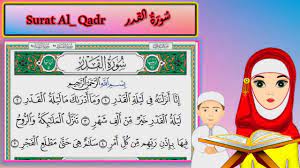 Surat Al_ Qadr سُورَةُ القدر
سُورَةُ القَدْرِ
بِسْمِ اللَّهِ الرَّحْمَٰنِ الرَّحِيمِ
إِنَّا أَنزَلْنَاهُ فِي لَيْلَةِ الْقَدْرِ ۝ وَمَا أَدْرَاكَ مَا لَيْلَةُ الْقَدْرِ ۝
لَيْلَةُ الْقَدْرِ خَيْرٌ مِّنْ أَلْفِ شَهْرٍ ۝ تَنَزَّلُ الْمَلَائِكَةُ وَالرُّوحُ
فِيهَا بِإِذْنِ رَبِّهِم مِّن كُلِّ أَمْرٍ ۝ سَلَامٌ هِيَ حَتَّىٰ مَطْلَعِ الْفَجْرِ ۝